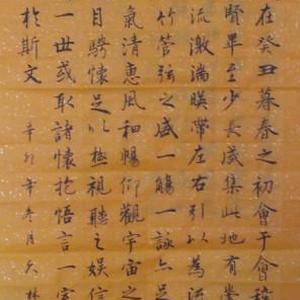 在癸丑暮春之初會于會稽
賢畢至少長咸集此地有崇
流激湍暎帶左右引以為流
竹管弦之盛一觴一詠亦足
氣清惠風和暢仰觀宇宙之
目騁懷足以極視聽之娛信
一世或取諸懷抱悟言一室
於斯文
辛卯年冬月